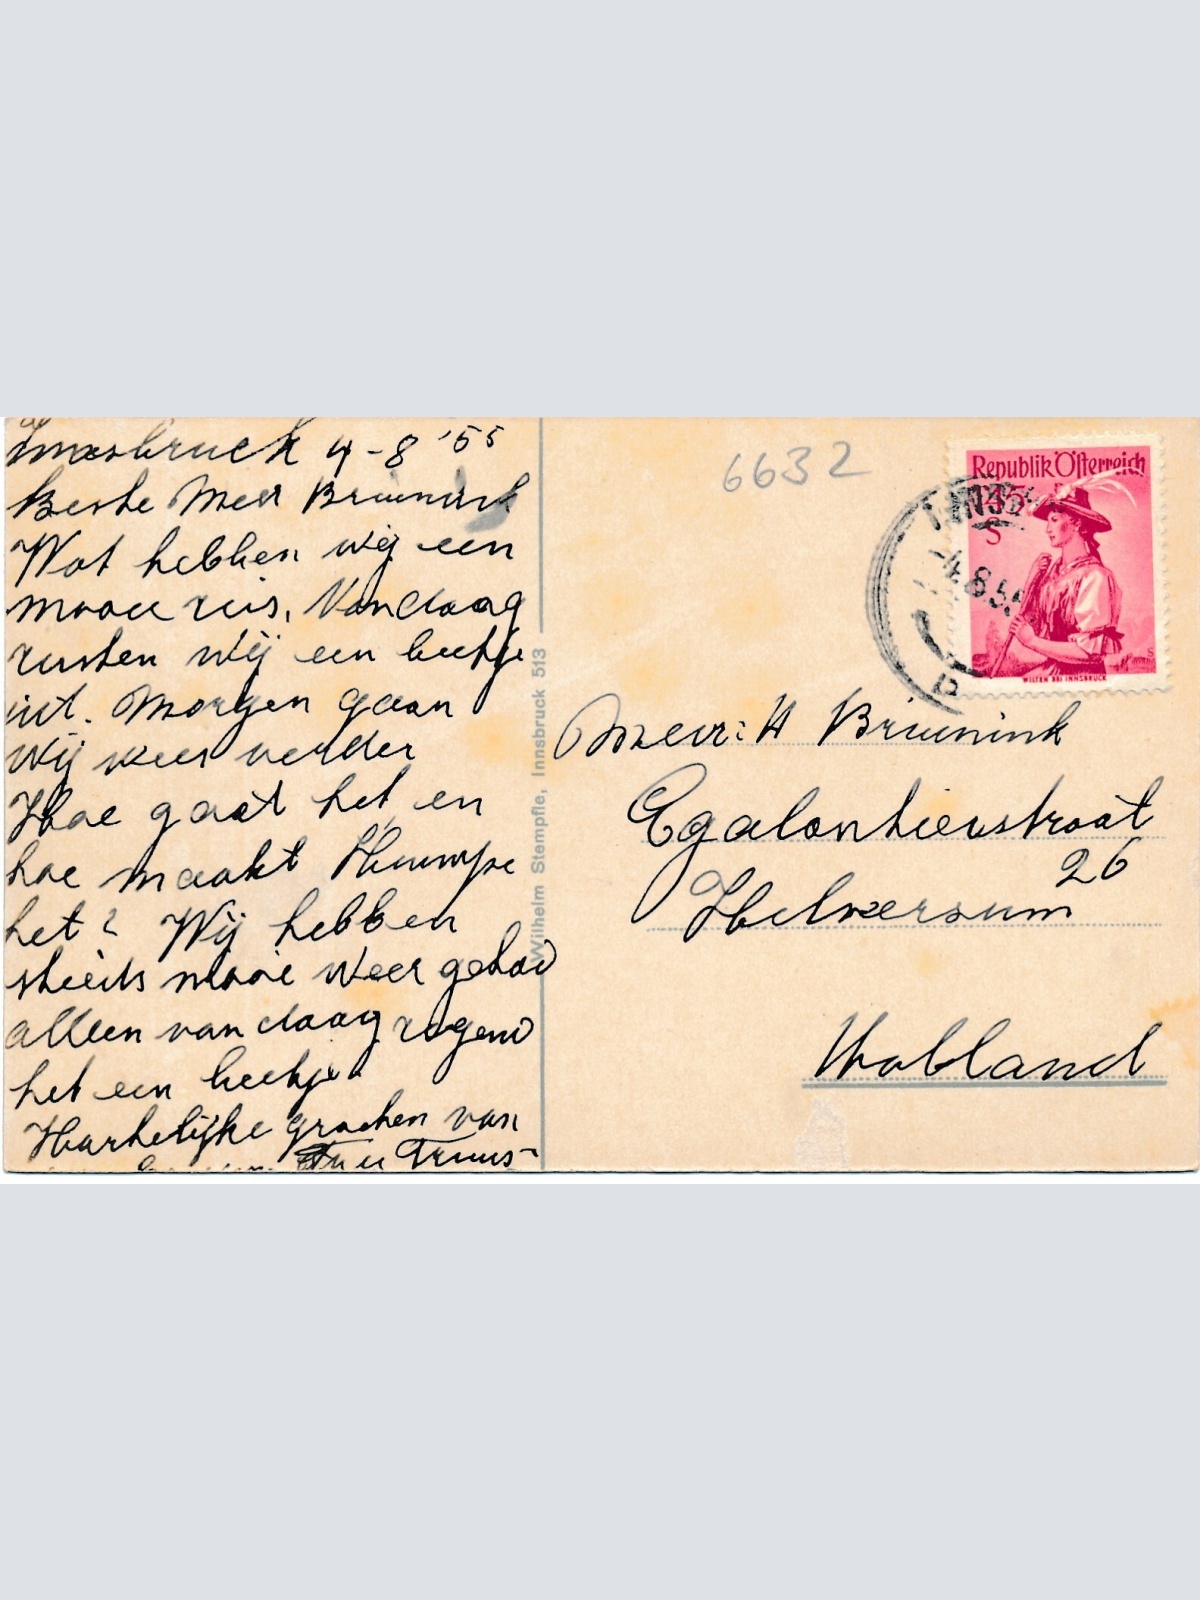 Innsbruck 4-8 '55
Beste Meer Bruunink
Wat hebben wij een
mooie reis, Vandaag
rusten wij een beetje
uit. Morgen gaan
wij weer verder
Hoe gaat het en
hoe maakt
het? Wij hebben
steeds mooie weer gehad
alleen vandaag regend
het een beetje
Hartelijke groeten van
Truus
Wilhelm Stempfle, Innsbruck 513
6632
Republik Österreich
1.45
S
WILTEN BEI INNSBRUCK
INNSB
4.8.55
Meer: H Bruunink
Egalantierstraat
26
Hilversum
Holland